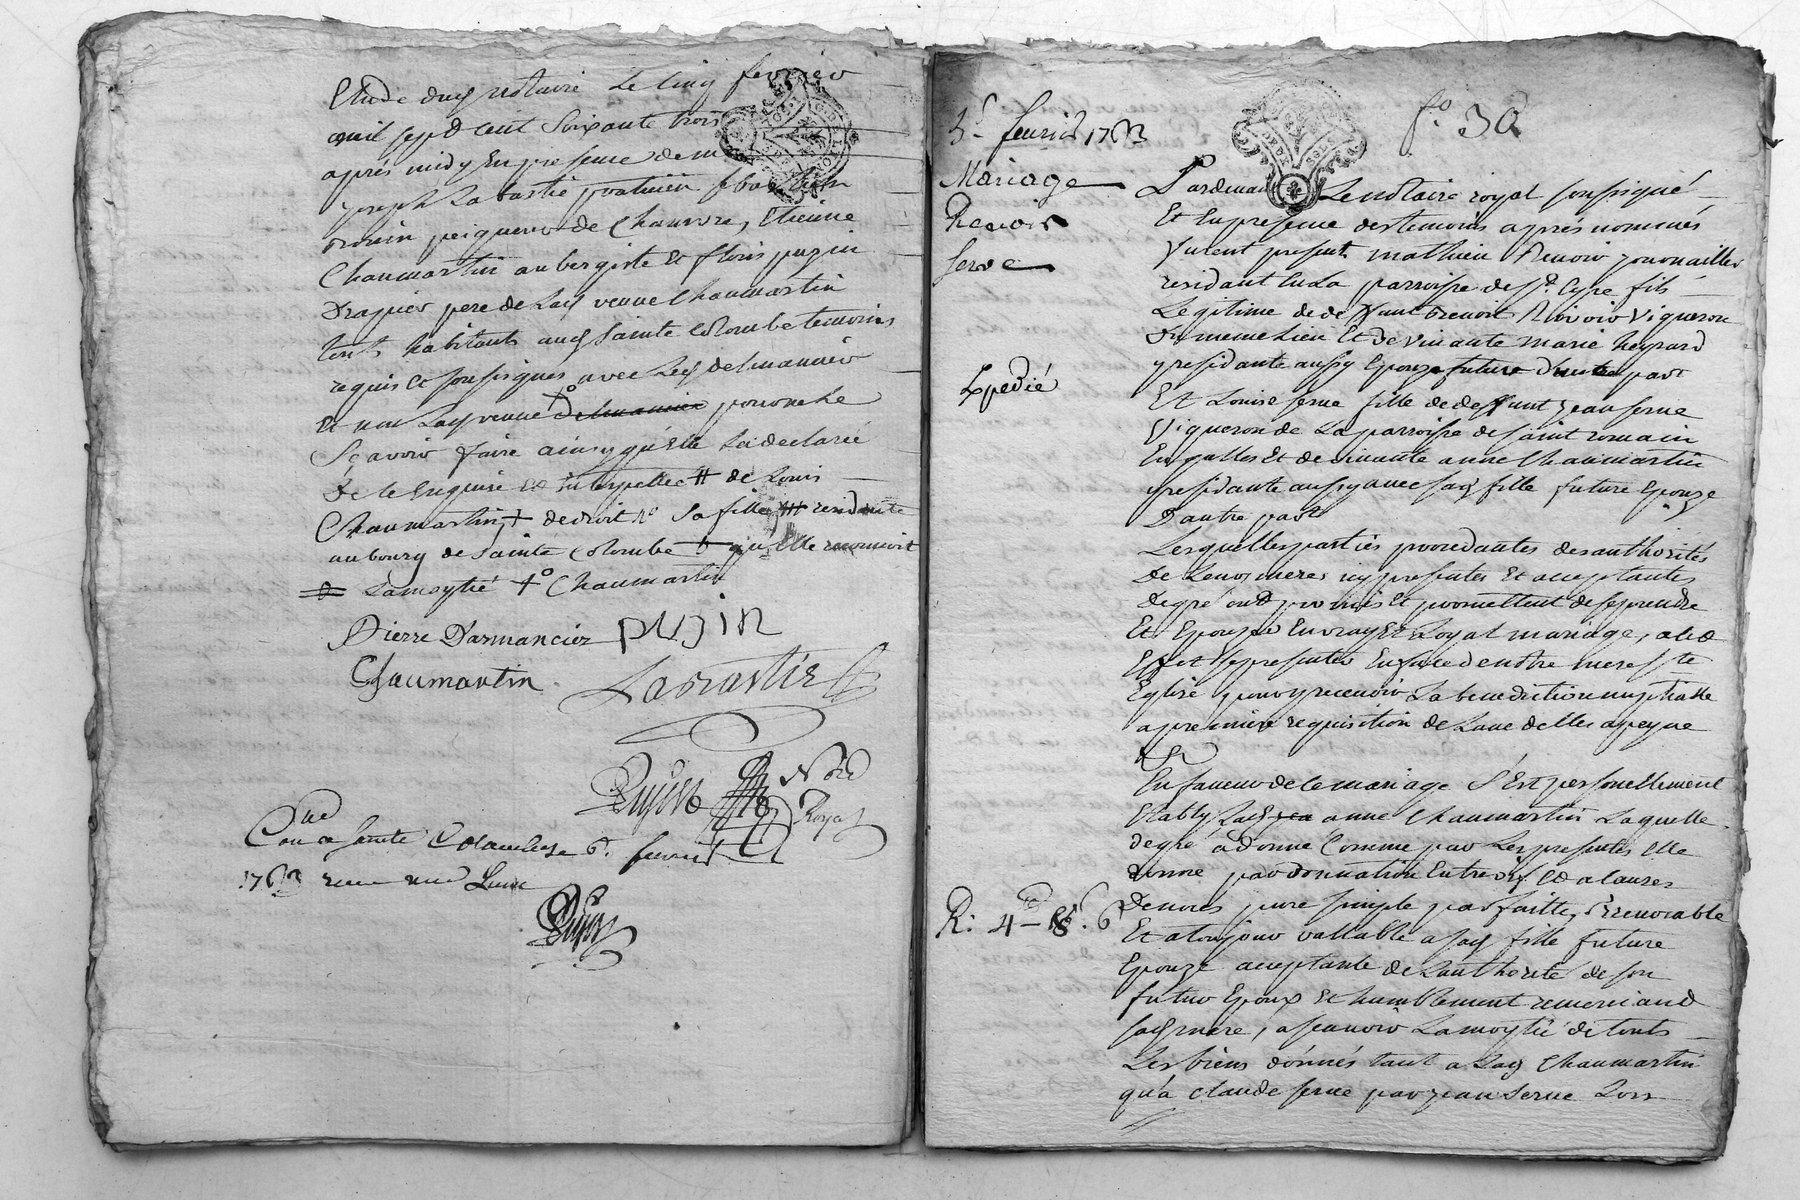 Etude dud notaire Le cinq fevrier
mil sept cent soixante trois
après midy En presence de m
joseph Labastie
de Chanvre, Etienne
Chaumartin aubergiste Et floris pugin
Drapier pere de Lad veuve Chaumartin
tous habitants aud Sainte Colombe temoins
requis Et soussignes avec Led delmancier
Et non Lad veuve Delmancier pour ne le
Scavoir faire ainsy qu'elle La declaré
De ce Enquise et interpellee # de Louis
Chaumartin + de droit sa fille residante
au bourg de Sainte Colombe qu'elle reconnoit
Lamoytié + Chaumartin
Pierre Darmancier pujin
Chaumartin
Labastie
Dupuis No^re
Royal
Con^lle a sainte Colombe 6. fevrier
1763 recu une Livre
Dupuis
5^e. fevrier 1763
f^o. 30
Mariage
Renoir
Serve
Expedié
R. 4 - 18. 6
Pardevant Le notaire royal soussigné
Et En presence des temoins aprés nommés
furent present mathieu Renoir journaillier
residant En La parroisse de S^t. Cyre fils
Legitime de deffunt benoit Renoir Vigneron
Du meme Lieu Et de vivante marie heyrard
y residante aussy Epouze future d'une part
Et Louise serve fille de deffunt jean serve
Vigneron de La parroisse de saint romain
En galles Et de vivante anne Chaumartin
y residante aussy avec sad fille future Epouze
D'autre part
Lesquelles parties procedantes des authorités
De Leurs meres icy presentes Et acceptantes
De gré ont promis Et promettent de se prendre
Et Epouzer En vray Et Loyal mariage, a cet
Effet se presenter En face de notre mere s^te
Eglise pour y recevoir La benediction nuptialle
a premiere requisition de L'une d'elles a peyne
En faveur de ce mariage S'Est personellement
Etably Lad anne Chaumartin Laquelle
de gré a donné Comme par Les presentes Elle
donne par donnation Entre vif et a cause
De noces pure simple parfaitte, irrevocable
Et a toujour vallable a sad fille future
Epouze acceptante de L'authorité de son
futur Epoux Et humblement remerciant
sad mere, a scavoir La moytié de touts
Les biens donnés tant a Lad Chaumartin
qu'a claude serve par jean Serve Lors